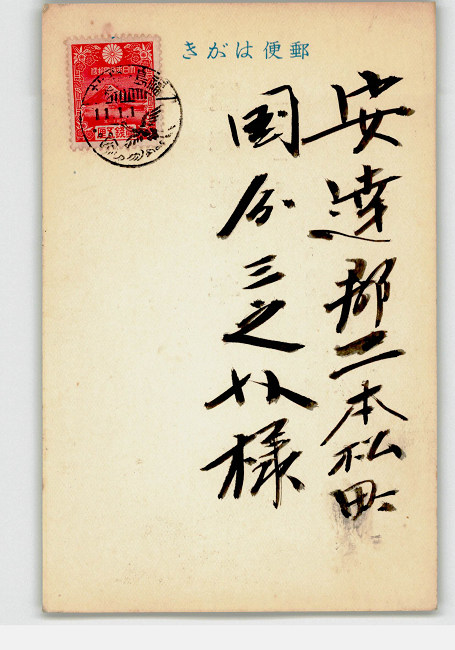 きがは便郵
安達郡二本松町
国分三之丞様
11.1.1